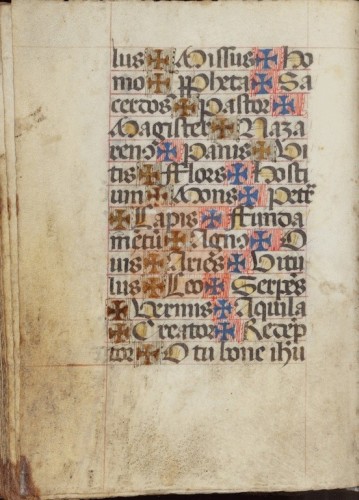 lus ✠ Missus ✠ Ho
mo ✠ Ppheta ✠ Sa
cerdos ✠ Pastor ✠
Magister ✠ Naza
renꝰ ✠ Panis ✠ Vi
tis ✠ fflors ✠ Hosti
um ✠ Mons ✠ Petꝛ
✠ Lapis ✠ ffunda
metū ✠ Agnꝰ ✠ O
uis ✠ Aries ✠ Vitu
lus ✠ Leo ✠ Serpēs
✠ Vermis ✠ Aquila
✠ Creator ✠ Recep
tor ✠ O tu bone ihu